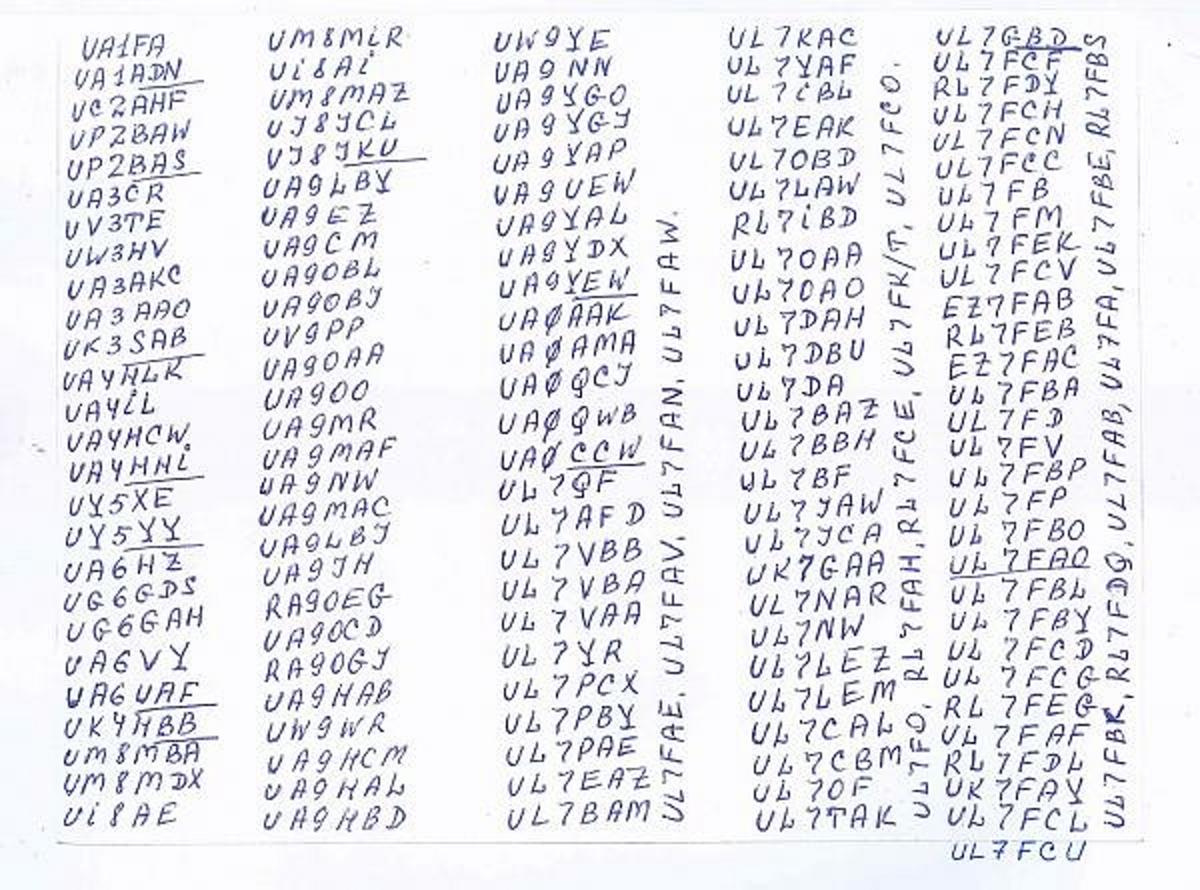 UA1FA
UA1ADN
UC2AHF
UP2BAW
UP2BAS
UA3CR
UV3TE
UW3HV
UA3AKC
UA3AAO
UK3SAB
UA4HLK
UA4iL
UA4HCW
UA4HNi
UY5XE
UY5YY
UA6HZ
UG6GDS
UG6GAH
UA6VY
UA6UAF
UK4HBB
UM8MBA
UM8MDX
Ui8AE
UM8MiR
Ui8Ai
UM8MAZ
UJ8JCL
UJ8JKU
UA9LBY
UA9EZ
UA9CM
UA9OBL
UA9OBJ
UV9PP
UA9OAA
UA9OO
UA9MR
UA9MAF
UA9NW
UA9MAC
UA9LBJ
UA9JH
RA9OEG
UA9OCD
RA9OGJ
UA9HAB
UW9WR
UA9HCM
UA9HAL
UA9HBD
UW9YE
UA9NN
UA9YGO
UA9YGJ
UA9YAP
UA9UEW
UA9YAL
UA9YDX
UA9YEW
UAØAAK
UAØAMA
UAØQCJ
UAØQWB
UAØCCW
UL7QF
UL7AFD
UL7VBB
UL7VBA
UL7VAA
UL7YR
UL7PCX
UL7PBY
UL7PAE
UL7EAZ
UL7BAM
UL7FAE, UL7FAV, UL7FAN, UL7FAW.
UL7KAC
UL7YAF
UL7CBL
UL7EAK
UL7OBD
UL7LAW
RL7iBD
UL7OAA
UL7OAO
UL7DAH
UL7DBU
UL7DA
UL7BAZ
UL7BBH
UL7BF
UL7JAW
UL7JCA
UK7GAA
UL7NAR
UL7NW
UL7LEZ
UL7LEM
UL7CAL
UL7CBM
UL7OF
UL7TAK
UL7FO, RL7FAH, RL7FCE, UL7FK/T, UL7FCO.
UL7GBD
UL7FCF
RL7FDY
UL7FCH
UL7FCN
UL7FCC
UL7FB
UL7FM
UL7FEK
UL7FCV
EZ7FAB
RL7FEB
EZ7FAC
UL7FBA
UL7FD
UL7FV
UL7FBP
UL7FP
UL7FBO
UL7FAO
UL7FBL
UL7FBY
UL7FCD
UL7FCG
RL7FEG
UL7FAF
RL7FDL
UK7FAY
UL7FCL
UL7FCU
UL7FBK, RL7FDQ, UL7FAB, UL7FA, UL7FBE, RL7FBS